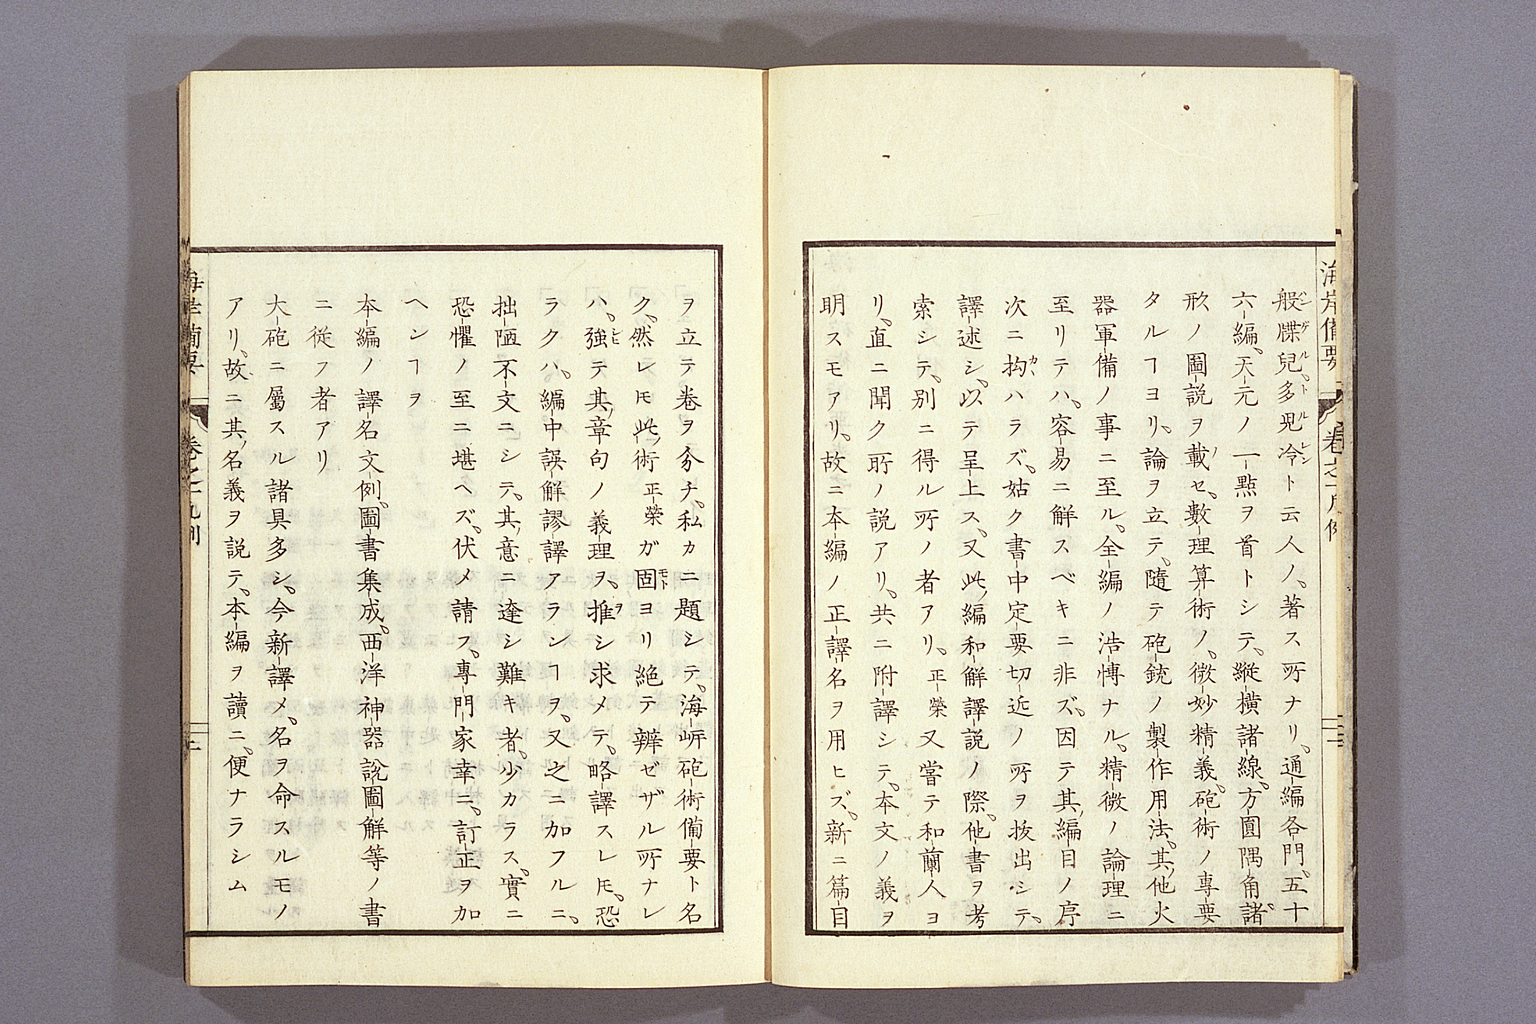 海岸備要 卷之一凡例
般牒兒多兒冷ト云人ノ、著ス所ナリ、通編各門、五十
六編、天元ノ一點ヲ首トシテ、縱横諸線、方圓隅角、諸
形ノ圖説ヲ載セ、數理算術ノ、微妙精義、砲術ノ專要
タルヿヨリ、論ヲ立テ、隨テ砲銃ノ製作用法、其他火
器軍備ノ事ニ至ル、全編ノ浩博ナル、精微ノ論理ニ
至リテハ、容易ニ解スベキニ非ズ、因テ其編目ノ序
次ニ拘ハラズ、姑ク書中定要切近ノ所ヲ抜出シテ、
譯述シ、以テ呈上ス、又此編和解譯説ノ際、他書ヲ考
索シテ、別ニ得ル所ノ者アリ、正榮又當テ和蘭人ヨ
リ、直ニ聞ク所ノ説アリ、共ニ附譯シテ、本文ノ義ヲ
明スモアリ、故ニ本編ノ正譯名ヲ用ヒズ、新ニ篇目
ヲ立テ卷ヲ分チ、私カニ題シテ、海岸砲術備要ト名
ク、然レ𪜈此術正榮ガ固ヨリ絶テ辨ゼザル所ナレ
ハ、強テ其章句ノ義理ヲ、推シ求メテ、略譯スレ𪜈、恐
ラクハ、編中誤解謬譯アランヿヲ、又之ニ加フルニ、
拙陋不文ニシテ、其意ニ達シ難キ者、少カラス、實ニ
恐懼ノ至ニ堪ヘズ、伏メ請ス、專門家幸ニ、訂正ヲ加
ヘンヿヲ
本編ノ譯名文例、圖書集成、西洋神器説圖解等ノ書
ニ從フ者アリ
大砲ニ屬スル諸具多シ、今新譯メ、名ヲ命スルモノ
アリ、故ニ其名義ヲ説テ、本編ヲ讀ニ、便ナラシム
海岸備要 卷之一凡例